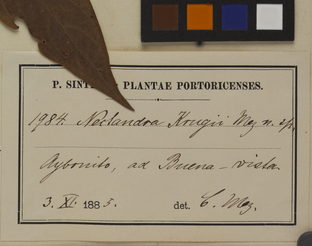 P. SINT PLANTAE PORTORICENSES.
1984. Nectandra Krugii Mez n. sp.
Aybonito, ad Buena-vista.
3. XI. 1885. det. C. Mez.